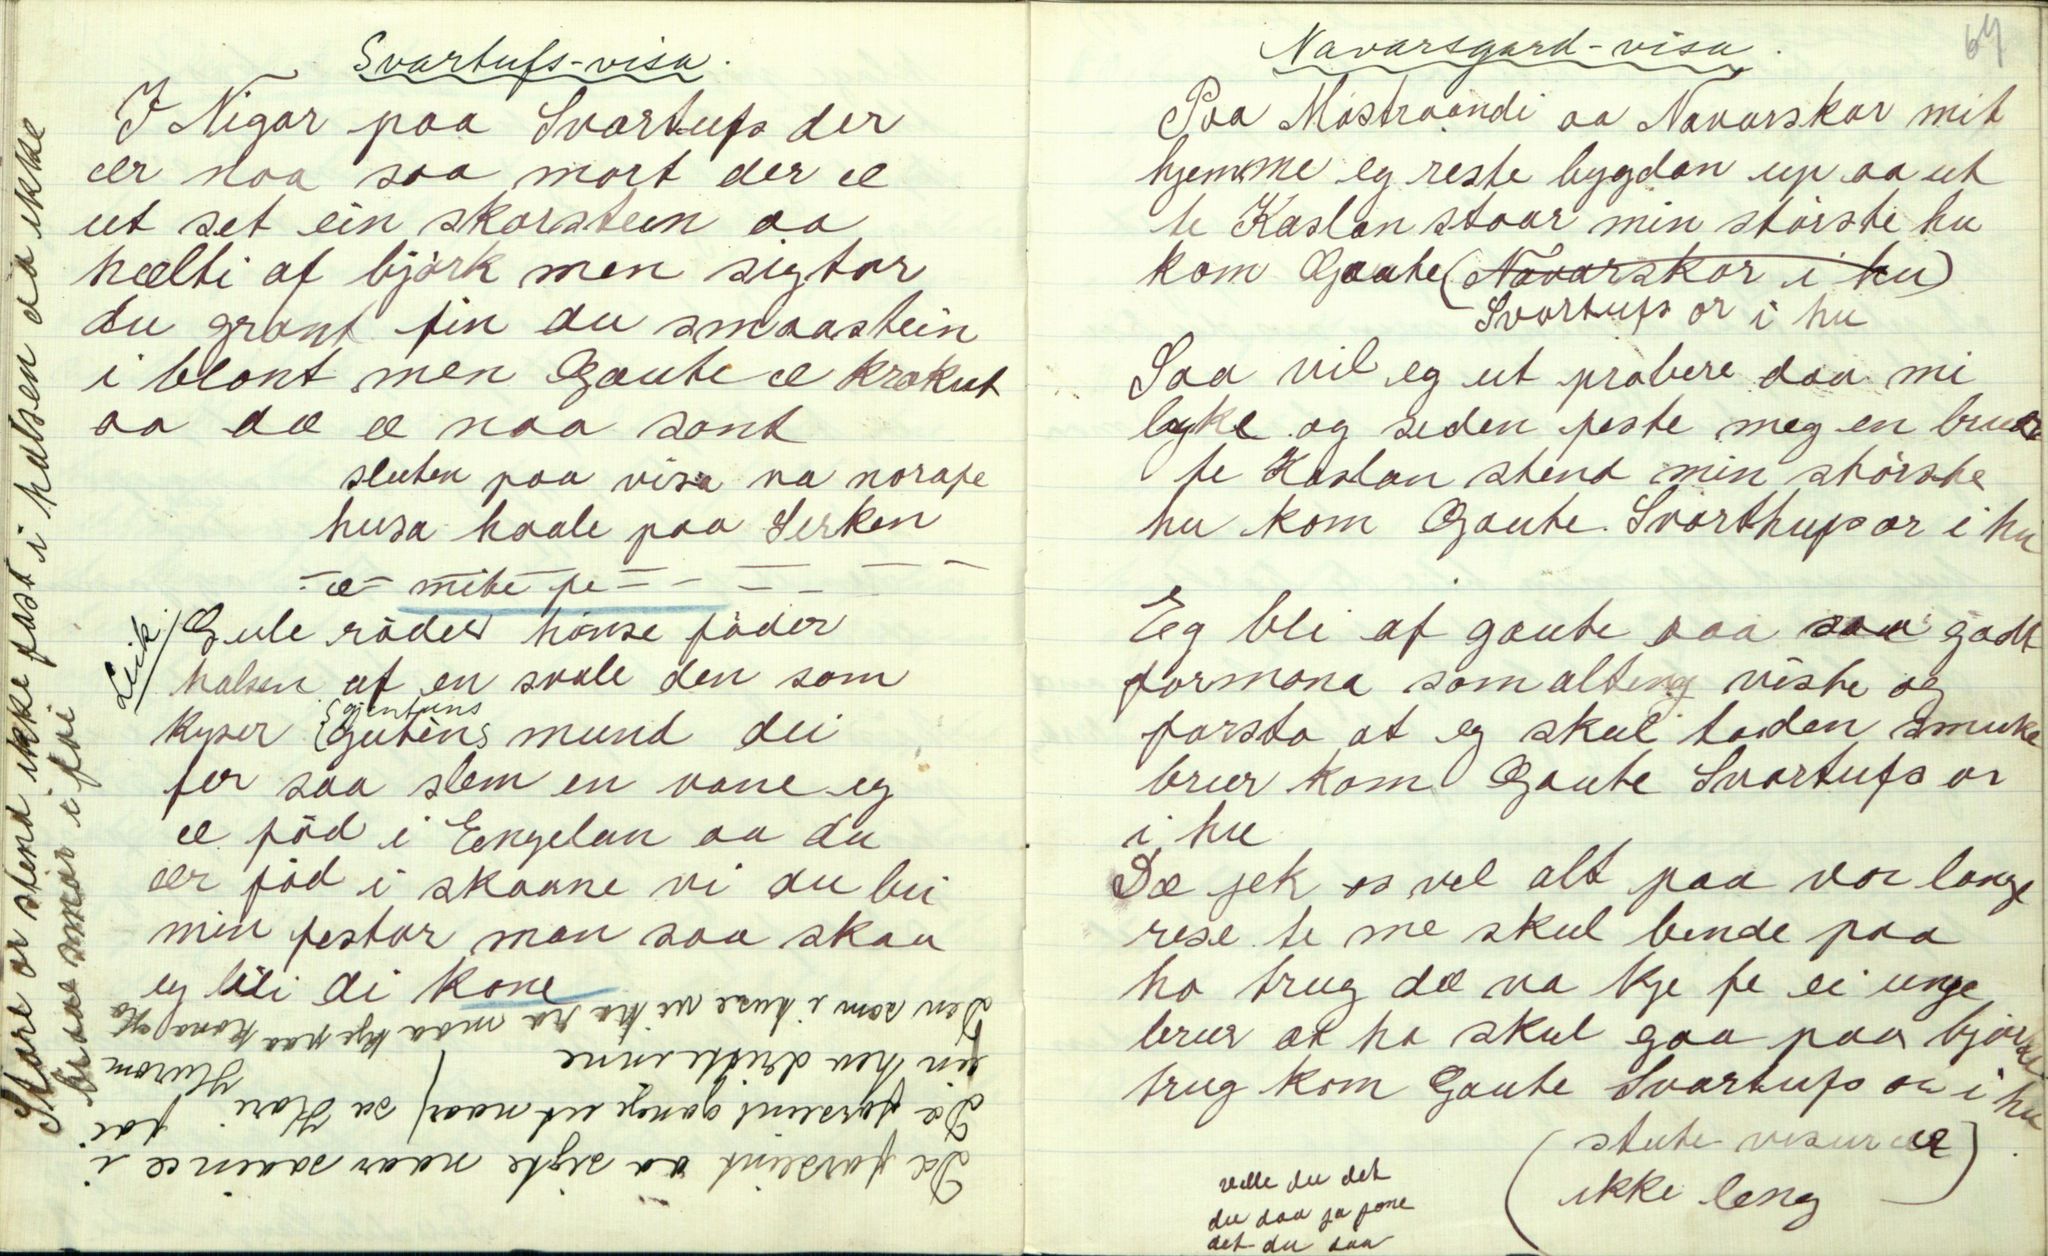 Svartufs-visa.
I Nigar paa Svartufs der
er noa saa mort der æ
ut set ein skorsteen aa
hælti af björk men sigtar
du grant fin du smaastein
i blant men Gaute æ krokut
aa dæ æ naa sant
sluten paa visa va norafe
husa haale paa Serken
— æ — mite fe — — — —
Leik
Gule röder hönse föder
halsen af en svale den som
kyser Gutens mund dei
gjentuns
fer saa slem en vane eg
æ föd i Eengelan aa du
ær föd i skaane vi du bli
min festar man saa skaa
eg bli di kone
Den som i huse vi ha ra maa kje paa kona
ein hev drikke inne
Dæ forseint gange ut naar / sa Kari Hurom
Dæ forseint aa sigte naar saaine æ i foi
Stare or stend ikke fast i halsen da ikke
smar i foi
64
Navarsgard-visa.
Paa Møstraandi aa Navarskar mit
hjemme eg reste bygdan up aa ut
te Kaslan staar min störste hu
kom Gaute (Navarskar i hu)
Svartufs or i hu
Saa vil eg ut probere daa mi
lyke og seden feste meg en brur
te Kaslan stend min störste
hu kom Gaute Svarthufs or i hu
Eg bli af gaute aaa saa godt
formona som alteng viste og
forsto at eg skul ta den smuke
brur kom Gaute Svartufs or
i hu
Dæ jek os vel alt paa vor lange
rese te me skul bende paa
ho trug dæ va kje fe ei unge
brur at ho skul gaa paa björke
trug kom Gaute Svartufs or i hu
(stute visur ær
ikke leng)
velle du det
du daa ja fore
det du daa